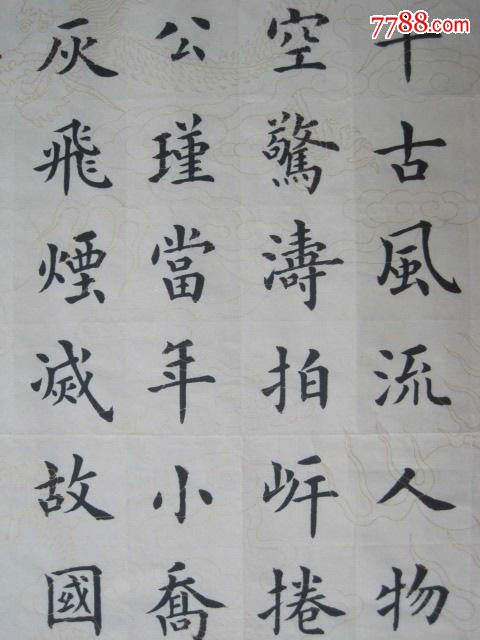 7788.com
千古風流人物
空驚濤拍岸捲
公瑾當年小喬
灰飛煙滅故國